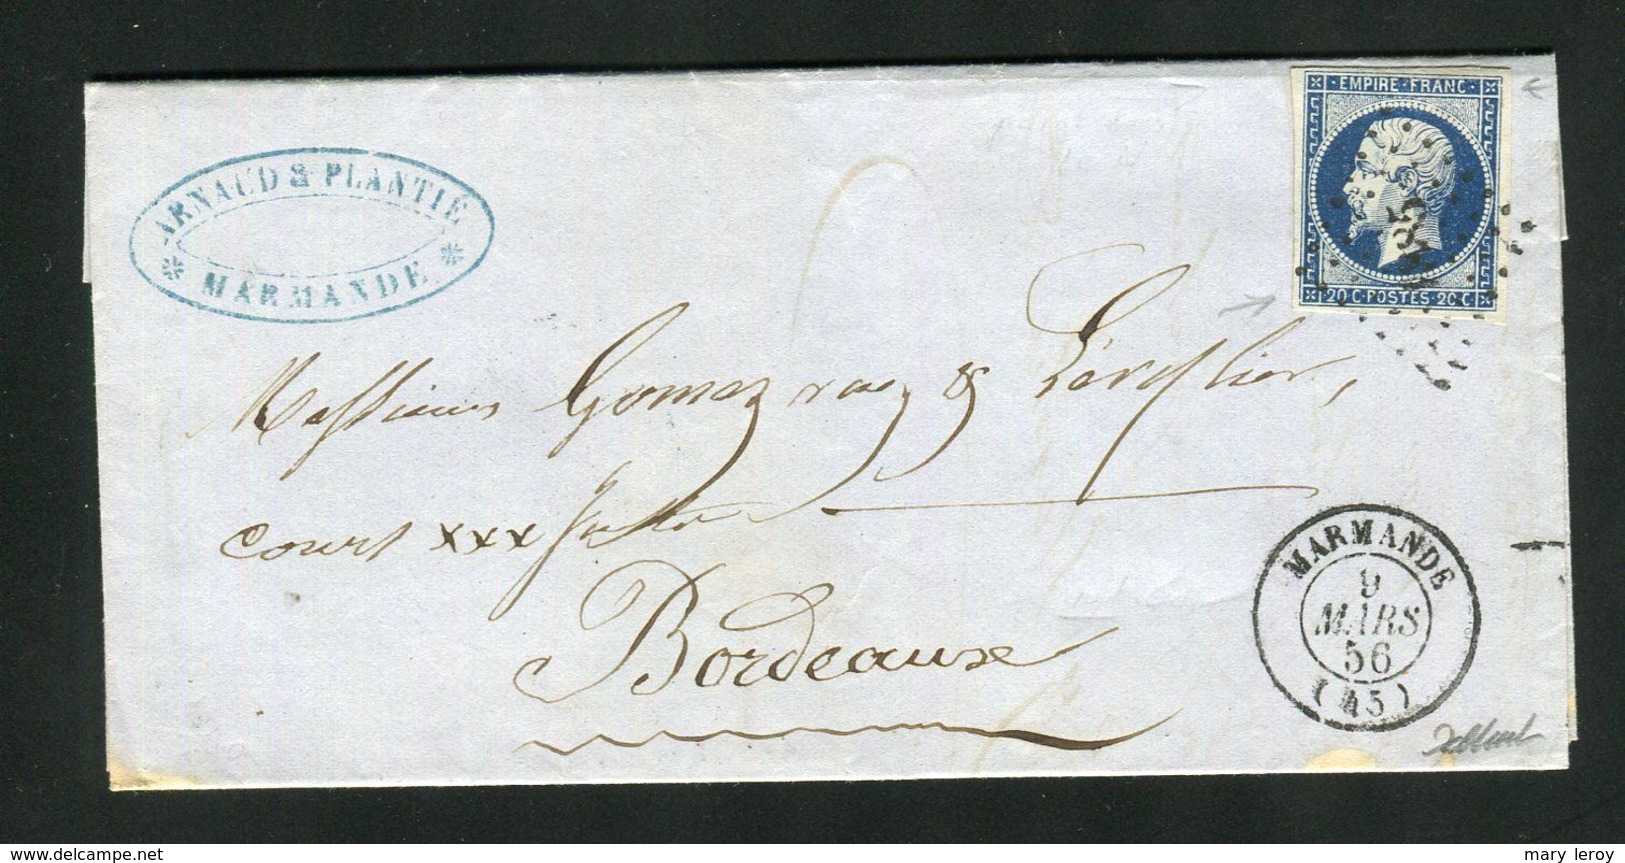 ARNAUD & PLANTIÉ
MARMANDE
EMPIRE · FRANC ·
20 C · POSTES · 20 C
Messieurs Gomez Vaez &
cours xxx
Bordeaux
MARMANDE
9
MARS
56
(45)
delcampe.net
mary leroy